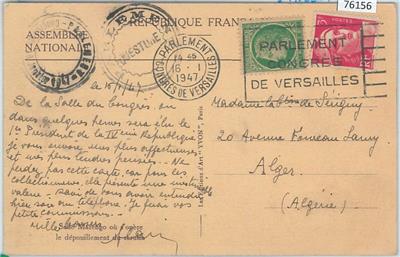 76156
RÉPUBLIQUE FRANÇAISE
ASSEMBLÉE
NATIONALE
PARLEMENT
14 45
16 - 1
1947
CONGRÈS DE VERSAILLES
PARLEMENT
CONGRÈS
DE VERSAILLES
POSTES
Le 16/1/47
De la Salle du Congrès, où
dans quelques heures sera élu le
1er Président de la IVème République
je vous envoie mes plus affectueuses
et mes plus tendres pensées. Ne
perdez pas cette carte, car pour les
collectionneurs, elle présente une
valeur. Ravi de vous avoir entendu
hier soir au téléphone. Je ferai vos
petites commissions.
Mille
Salle Marengo où s'opère
le dépouillement du scrutin
Les Éditions d'Art "YVON", Paris
Madame
20 Avenue
Alger
(Algérie)